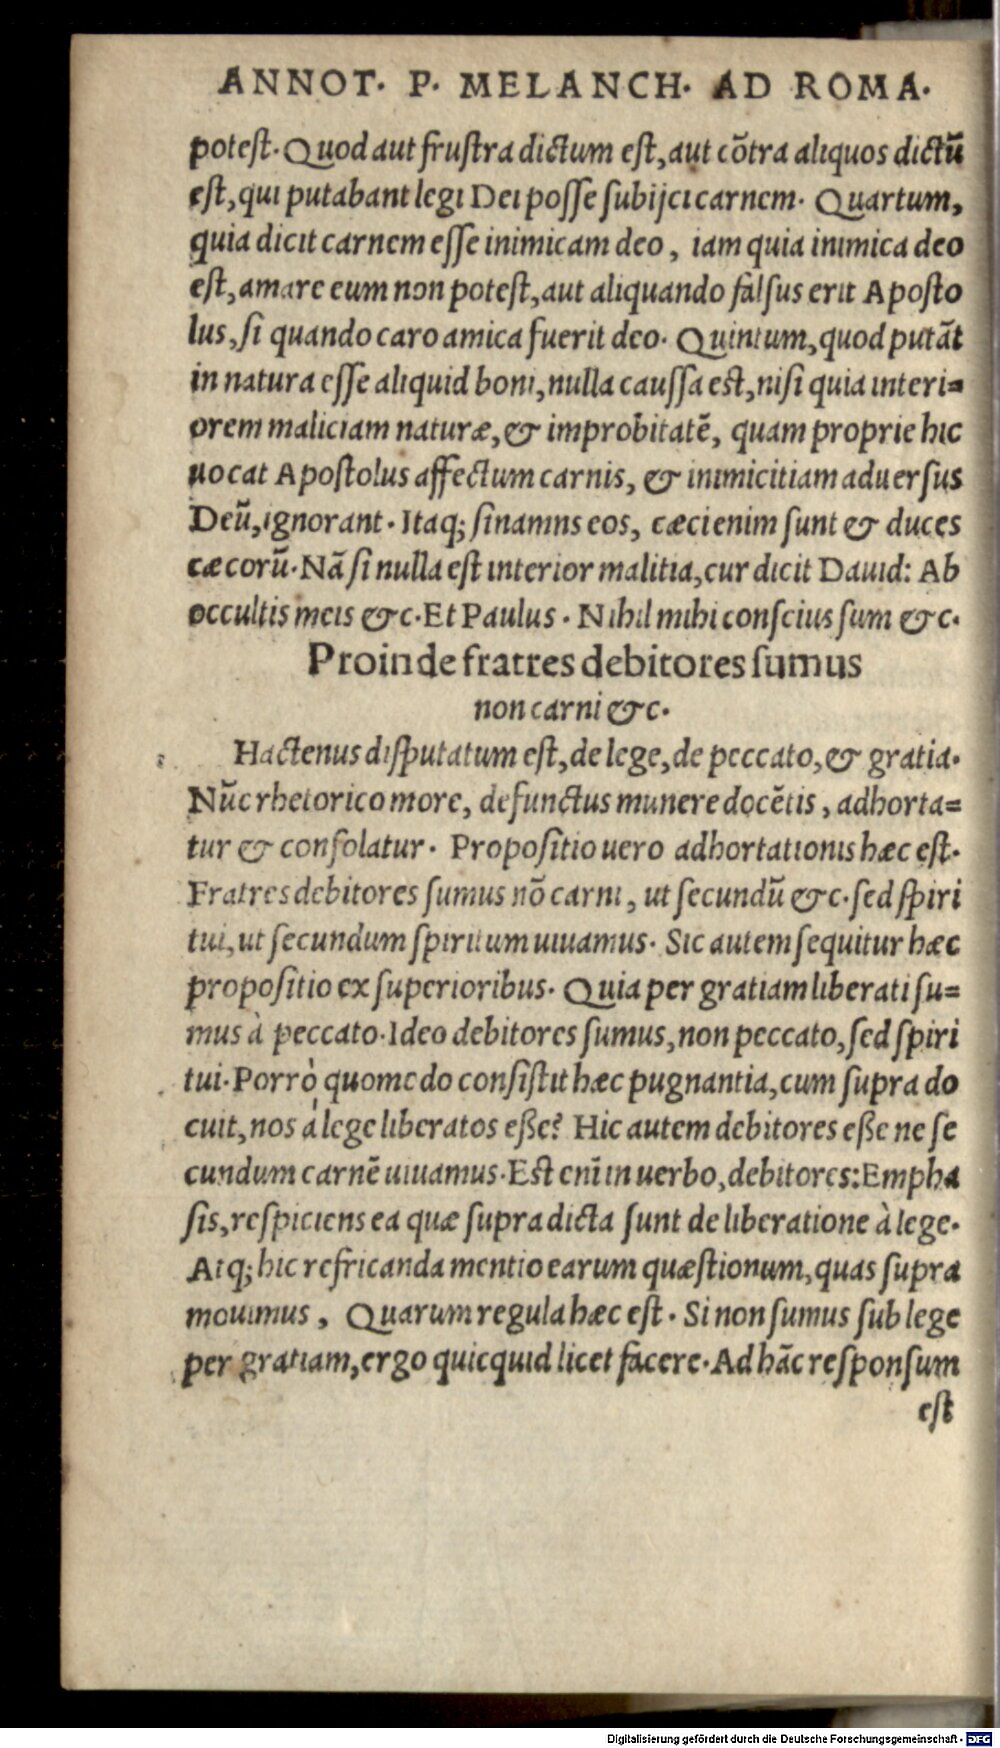 ANNOT. P. MELANCH. AD ROMA.
potest. Quod aut frustra dictum est, aut cõtra aliquos dictũ
est, qui putabant legi Dei posse subijci carnem. Quartum,
quia dicit carnem esse inimicam deo, iam quia inimica deo
est, amare eum non potest, aut aliquando falsus erit Aposto
lus, si quando caro amica fuerit deo. Quintum, quod putãt
in natura esse aliquid boni, nulla caussa est, nisi quia interi=
orem maliciam naturæ, & improbitatẽ, quam proprie hic
uocat Apostolus affectum carnis, & inimicitiam aduersus
Deũ, ignorant. Itaq; sinamns eos, cæci enim sunt & duces
cæcorũ. Nã si nulla est interior malitia, cur dicit Dauid: Ab
occultis meis &c. Et Paulus. Nihil mihi conscius sum &c.
Proinde fratres debitores sumus
non carni &c.
Hactenus disputatum est, de lege, de peccato, & gratia.
Nũc rhetorico more, defunctus munere docẽtis, adhorta=
tur & consolatur. Propositio uero adhortationis hæc est.
Fratres debitores sumus nõ carni, ut secundũ &c. sed spiri
tui, ut secundum spiritum uiuamus. Sic autem sequitur hæc
propositio ex superioribus. Quia per gratiam liberati su=
mus à peccato. Ideo debitores sumus, non peccato, sed spiri
tui. Porrò quomodo consistit hæc pugnantia, cum supra do
cuit, nos à lege liberatos eße? Hic autem debitores eße ne se
cundum carnẽ uiuamus. Est enĩ in uerbo, debitores: Empha
sis, respiciens ea quæ supra dicta sunt de liberatione à lege.
Atq; hic refricanda mentio earum quæstionum, quas supra
mouimus, Quarum regula hæc est. Si non sumus sub lege
per gratiam, ergo quicquid licet facere. Ad hãc responsum
est
Digitalisierung gefördert durch die Deutsche Forschungsgemeinschaft - DFG